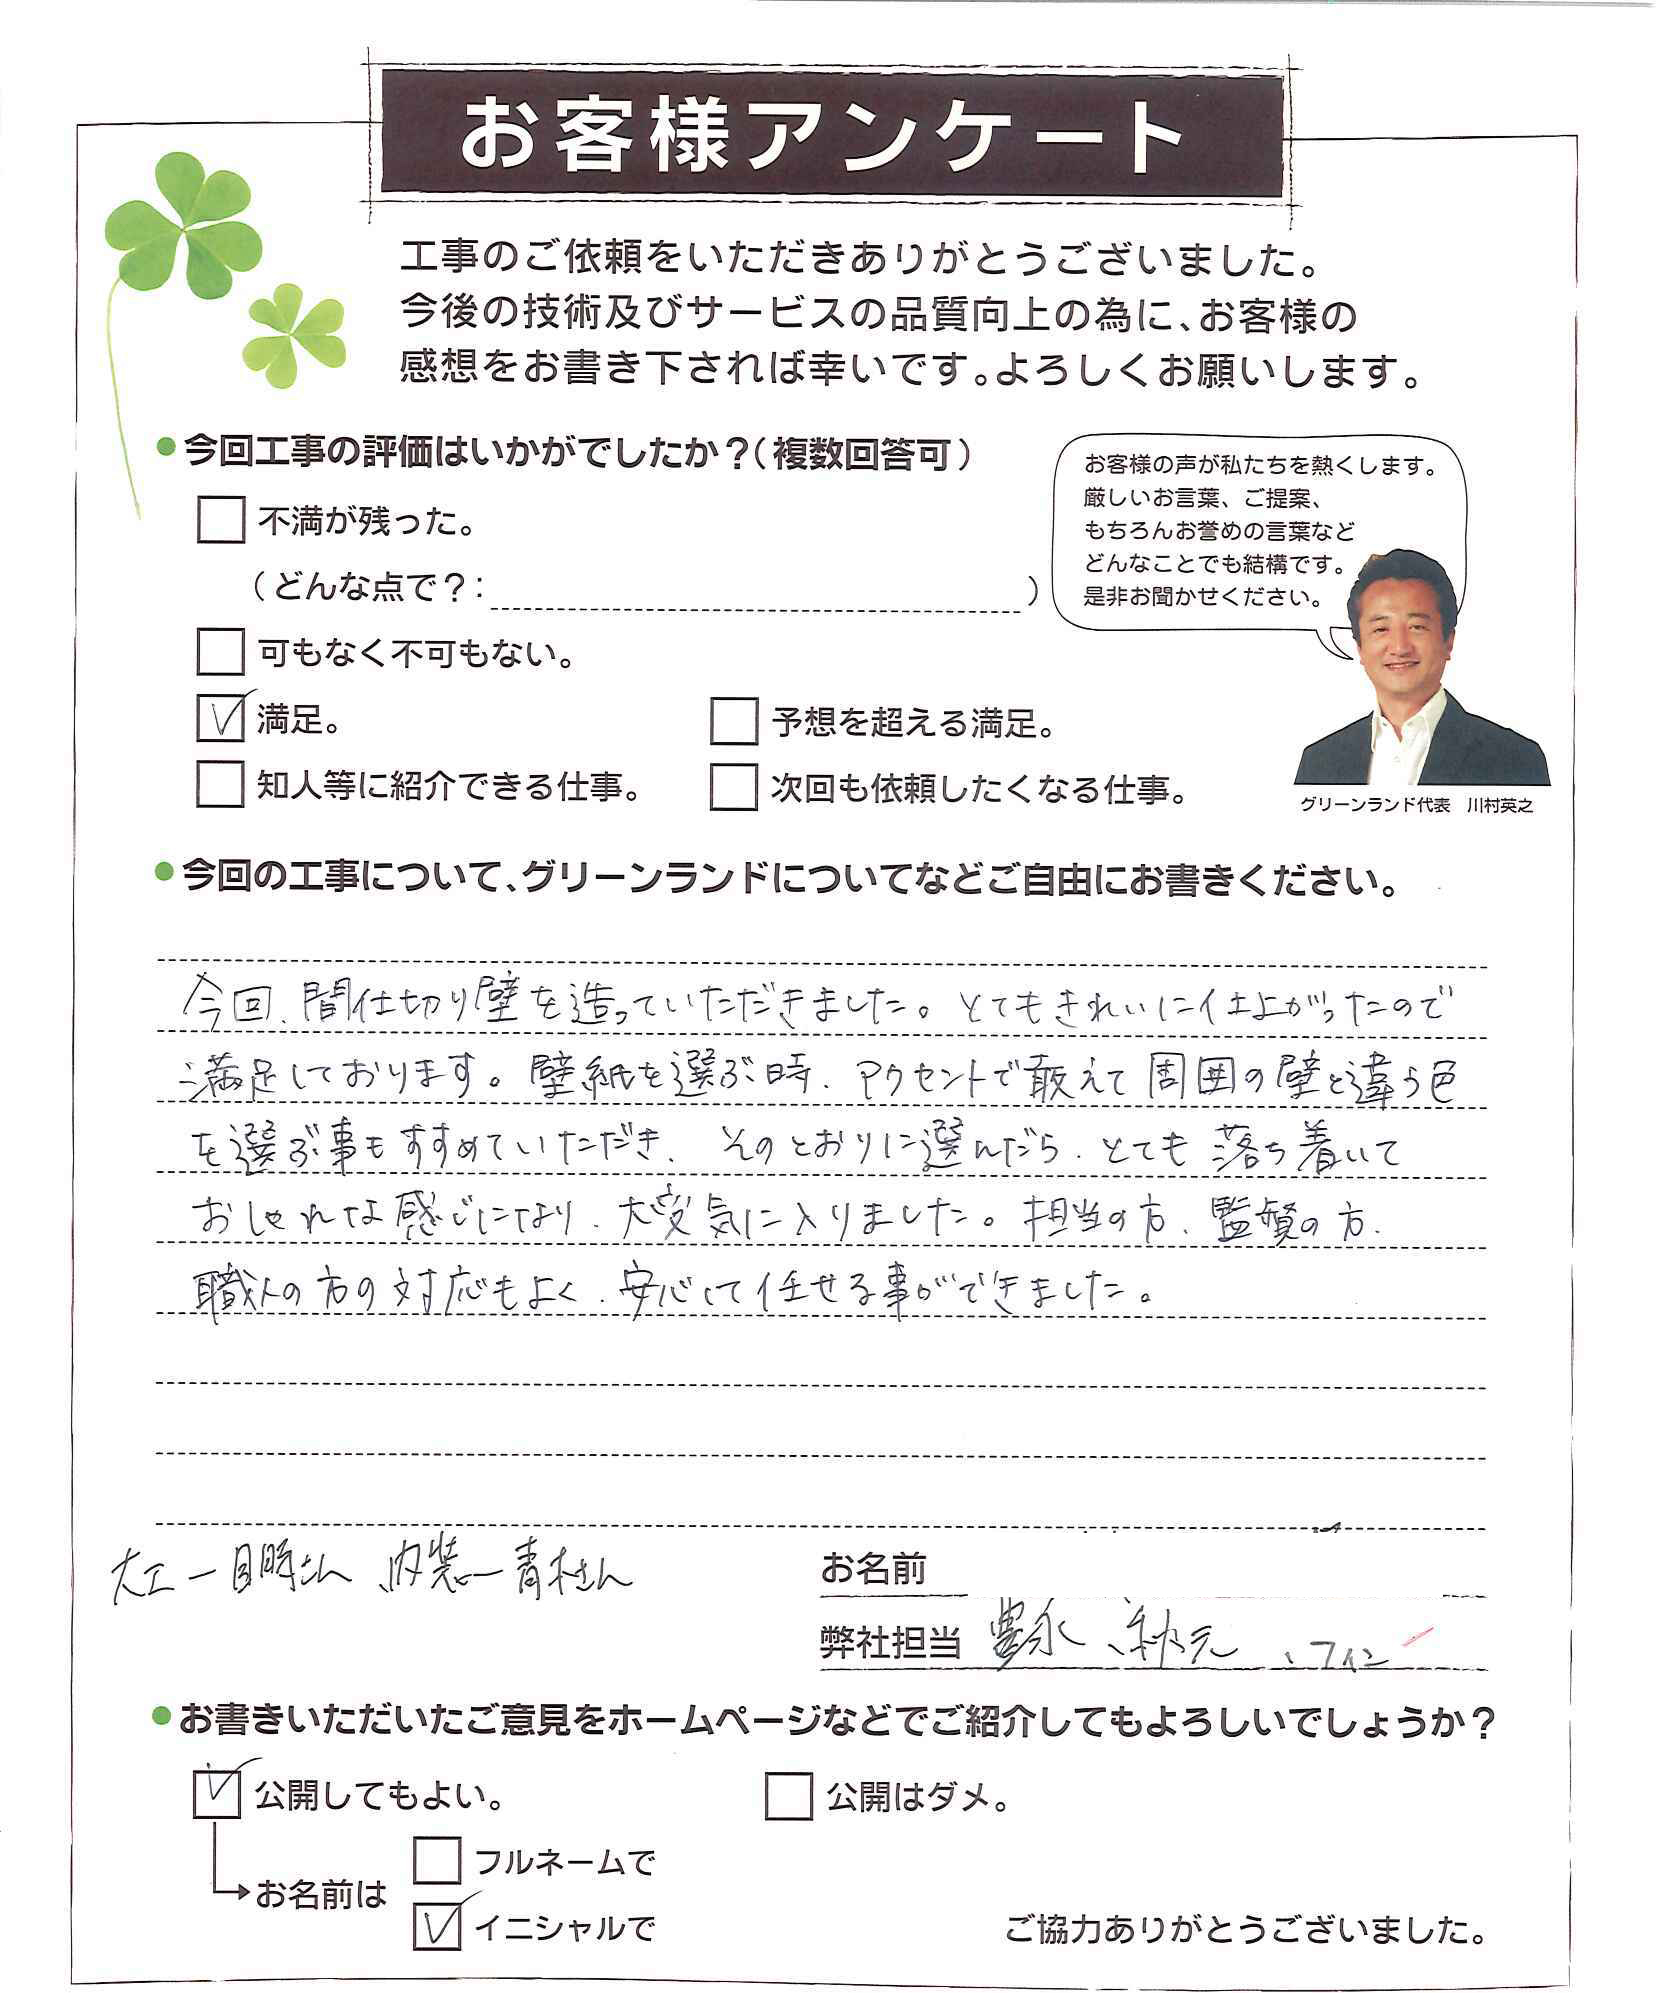 お客様アンケート
工事のご依頼をいただきありがとうございました。
今後の技術及びサービスの品質向上の為に、お客様の
感想をお書き下されれば幸いです。よろしくお願いします。
●今回工事の評価はいかがでしたか？（複数回答可）
不満が残った。
（どんな点で？： ）
可もなく不可もない。
満足。
予想を超える満足。
知人等に紹介できる仕事。
次回も依頼したくなる仕事。
お客様の声が私たちを熱くします。
厳しいお言葉、ご提案、
もちろんお誉めの言葉など
どんなことでも結構です。
是非お聞かせください。
グリーンランド代表 川村英之
●今回の工事について、グリーンランドについてなどご自由にお書きください。
今回、間仕切り壁を造っていただきました。とてもきれいに仕上がったので
満足しております。壁紙を選ぶ時、アクセントで敢えて周囲の壁と違う色
を選ぶ事もすすめていただき、そのとおりに選んだら、とても落ち着いて
おしゃれな感じになり、大変気に入りました。担当の方、監督の方、
職人の方の対応もよく、安心して任せる事ができました。
大工ー目時さん 内装ー青木さん
お名前
弊社担当 豊永、秋元、フィン
●お書きいただいたご意見をホームページなどでご紹介してもよろしいでしょうか？
公開してもよい。
公開はダメ。
お名前は
フルネームで
イニシャルで
ご協力ありがとうございました。